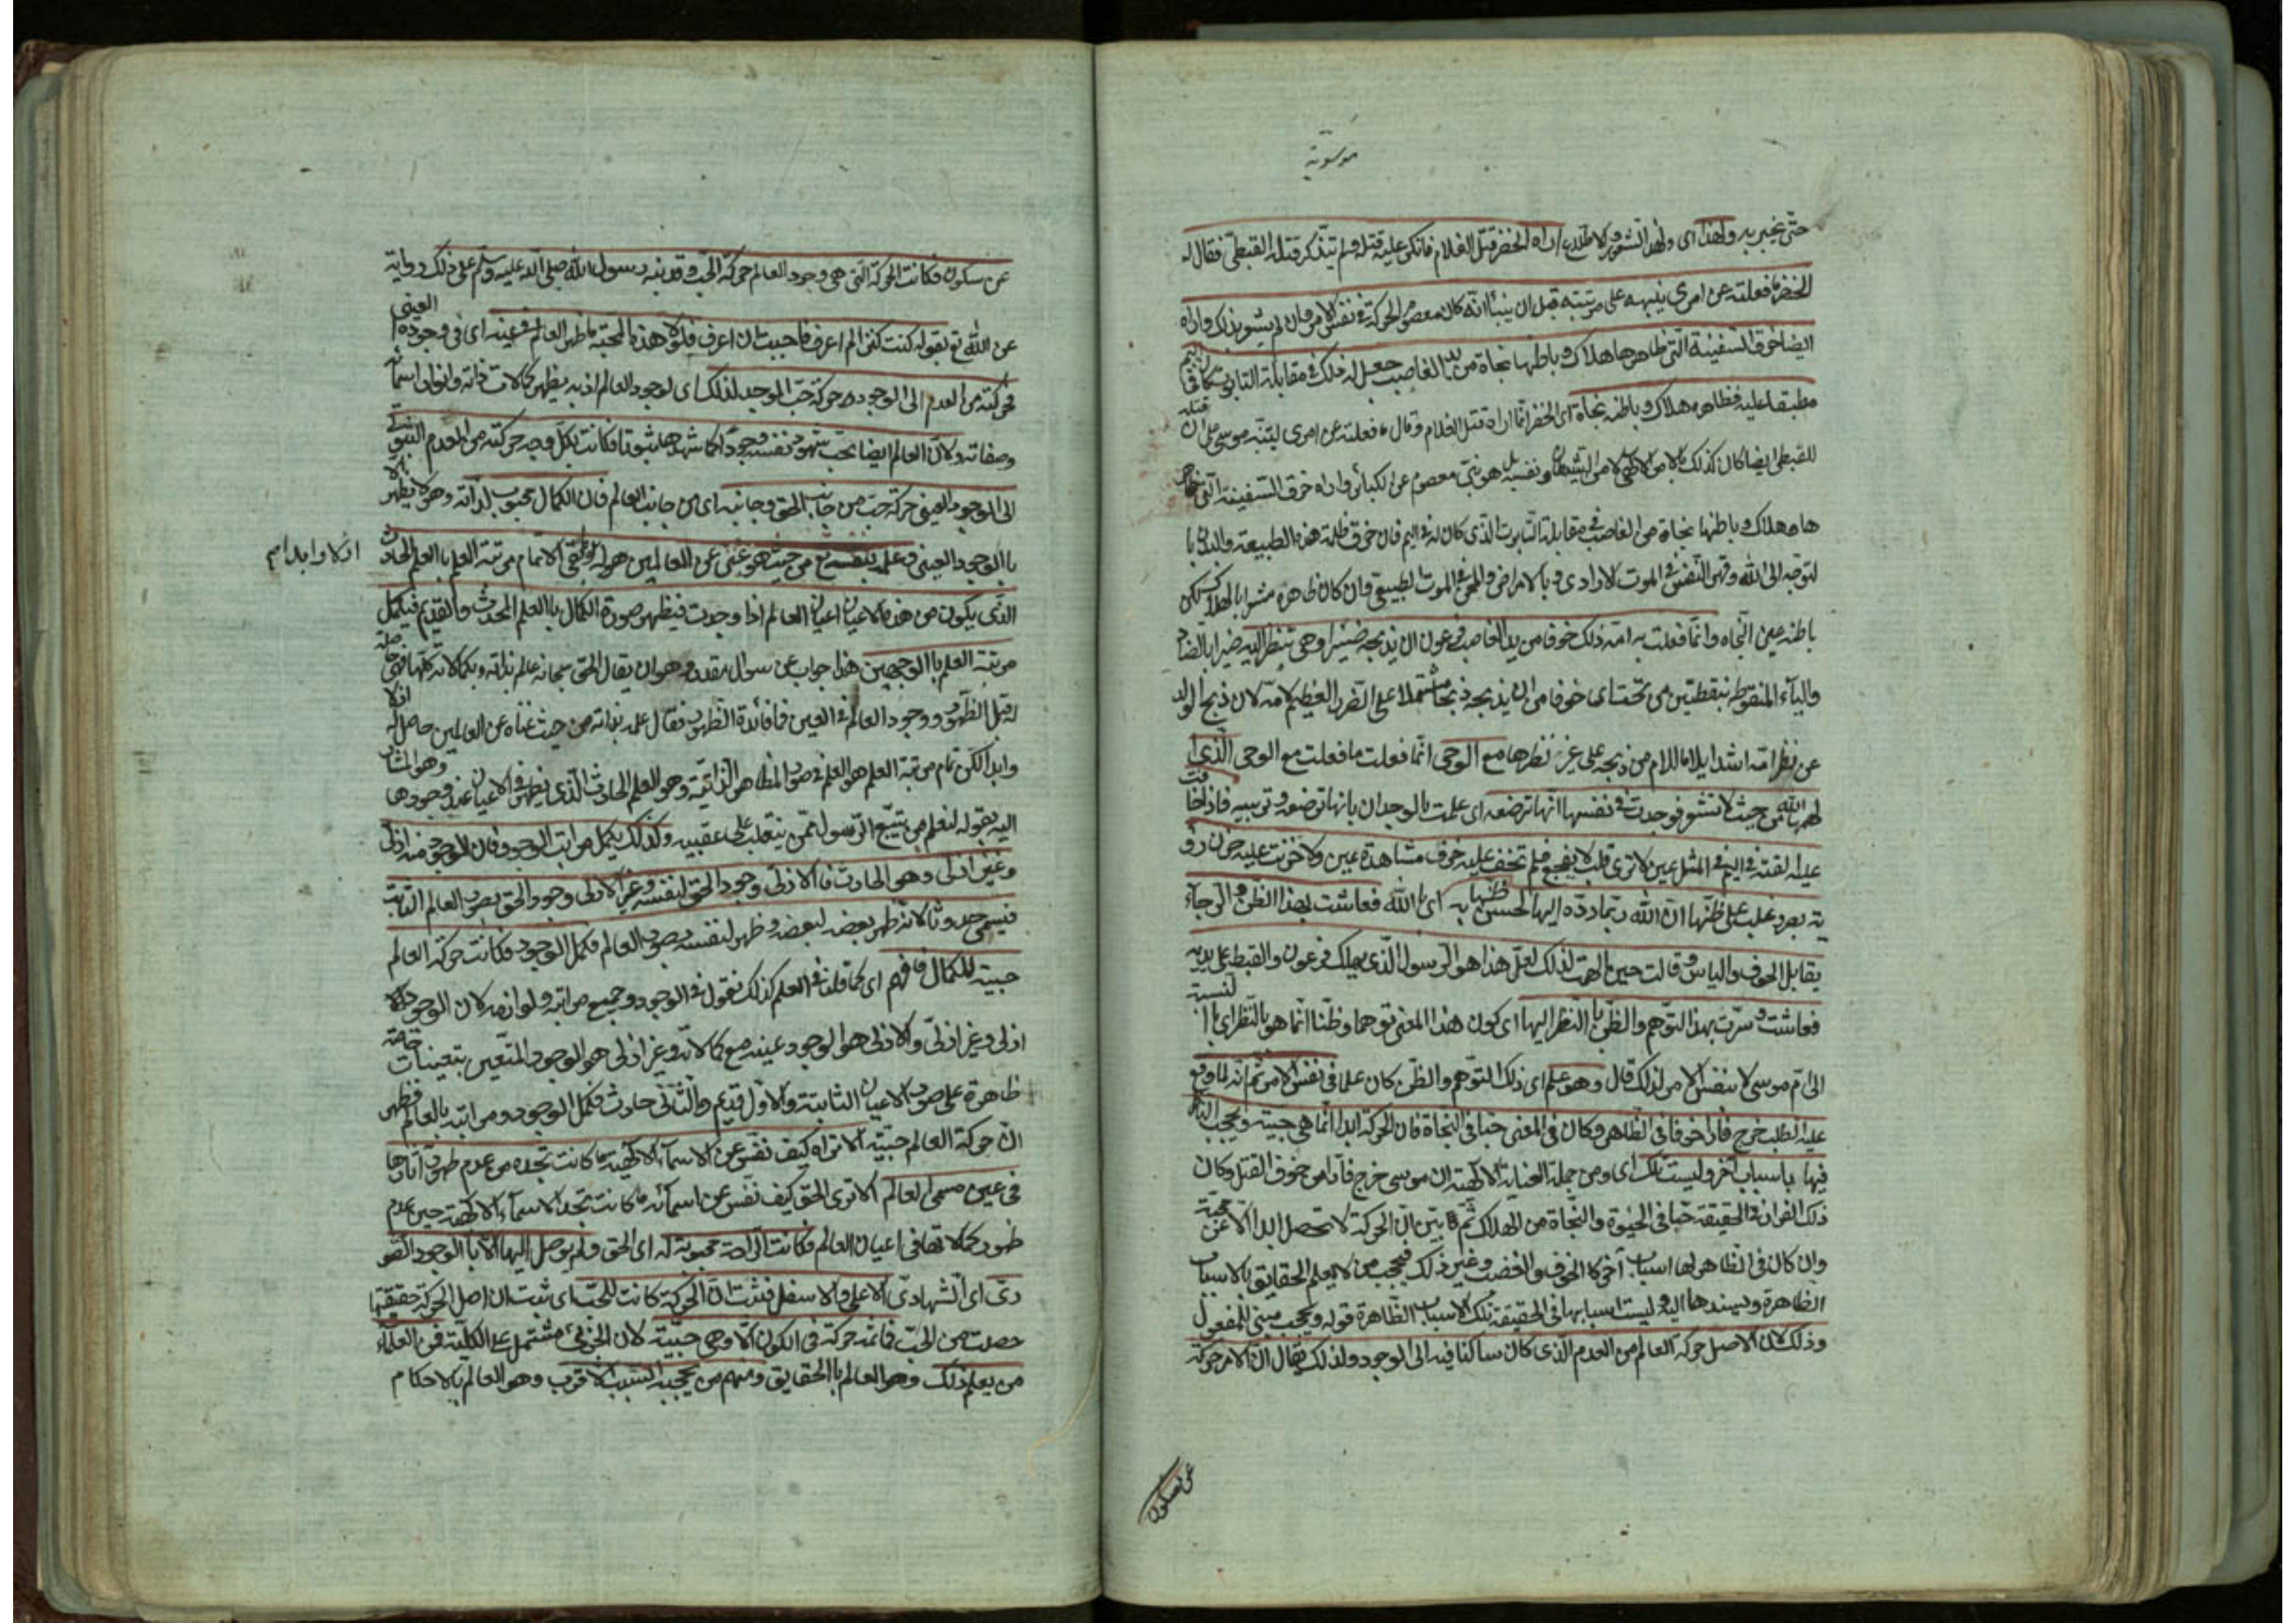 موسوية
حتى يخبر به ولهذا اى ولهذا الشعور والاطلاع اراه الخضر قتل الغلام فانكر عليه قتله ولم يتذكر قتله القبطى فقال له
الخضر ما فعلته عن امرى ينبهه على مرتبته قبل ان ينبأ انه كان معصوم الحركة فى نفس الامر وان لم يشعر بذلك واراه
ايضا خرق السفينة التى ظاهرها هلاك وباطنها نجاة من يد الغاصب جعل له ذلك فى مقابلة التابوت كان فى اليم
مطبقا عليه فظاهره هلاك وباطنه نجاة اى الخضر انما اراه قتل الغلام وقال ما فعلته عن امرى ليتنبه موسى على ان قتله
للقبطى ايضا كان كذلك بالامر الالهى لا من الشيطان ونفسه بل هو نبى معصوم عن الكبائر واراه خرق السفينة التى ظاهر
ها هلاك وباطنها نجاة من الغاصب فى مقابلة التابوت الذى كان له فى اليم فان خرق ظلمة هذه الطبيعة والبدن با
لتوجه الى الله وقهر النفس فى الموت الارادى وبالامراض والمحن فى الموت الطبيعى وان كان ظاهره مشعرا بالهلاك لكن
باطنه عين النجاه وانما فعلت به امه ذلك خوفا من يد الغاصب فرعون ان يذبحه ضيرا وهى تنظر اليه ضيرا بالضاد
والياء المنقوطه بنقطتين من تحت اى خوفا من ان يذبحه ذبحا مشتملا على الضرر العظيم لامه لان ذبح الولد
عن نظر امه اشد ايلاما للام من ذبحه على غير نظرها مع الوحى انما فعلت ما فعلت مع الوحى الذى ا
لهمها الله من حيث لا تشعر فوجدت فى نفسها انها ترضعه اى علمت بالوجدان بانها ترضعه وتربيه فاذا خافت
عليه القته فى اليم فى المثل عين لا ترى قلب لا يفجع فلم تخف عليه خوف مشاهدة عين ولا حزنت عليه حزن رؤ
ية بصر وغلب على ظنها ان الله ربما رده اليها لحسن ظنها به اى بالله فعاشت بهذا الظن والرجاء
يقابل الخوف والياس وقالت حين الهمت لذلك لعل هذا هو الرسول الذى يهلك فرعون والقبط على يديه
فعاشت وسرت بهذا التوهم والظن بالنظر اليها اى كون هذا المعنى توهما وظنا انما هو بالنظر اى با لنسبة
الى ام موسى لا بنفس الامر لذلك قال وهو علم اى ذلك التوهم والظن كان علما فى نفس الامر ثم انه لما وقع
عليه الطلب خرج فارا خوفا فى الظاهر وكان فى المعنى حبا فى النجاة فان الحركة ابدا انما هى حبية ويحجب الناظر
فيها باسباب اخر وليست تلك اى ومن جملة العناية الالهية ان موسى خرج فارا من خوف القتل وكان
ذلك الفرار فى الحقيقة حبا فى الحيوة والنجاة من الهلاك ثم بين ان الحركة لا تحصل ابدا الا عن محبة
وان كان فى الظاهر لها اسباب آخر كالخوف والغضب وغير ذلك فيحجب من لا يعلم الحقايق بالاسباب
الظاهرة ويسندها اليه وليست اسبابها فى الحقيقة تلك الاسباب الظاهرة قوله ويحجب مبنى للمفعول
وذلك لان الاصل حركة العالم من العدم الذى كان ساكنا فيه الى الوجود ولذلك يقال ان الامر حركة
عن سكون
عن سكون فكانت الحركة التى هى وجود العالم حركة الحب وقد نبه رسول الله صلى الله عليه وسلم على ذلك رواية
عن الله تع بقوله كنت كنزا لم اعرف فاحببت ان اعرف فلولا هذه المحبة ما ظهر العالم فى عينه اى فى وجوده العينى
فحركته من العدم الى الوجود حركة حب الموجد لذلك اى لوجود العالم اذ به يظهر كمالات ذاته وانوار اسمائه
وصفاته ولان العالم ايضا يحب شهود نفسه وجودا كما شهدها ثبوتا فكانت بكل وجه حركته من العدم الثبوتى
الى الوجود العينى حركة حب من جانب الحق وجانبه اى من جانب العالم فان الكمال محبوب لذاته وهو لا يظهر الا
بالوجود العينى وعلمه بنفسه تع من حيث هو غنى عن العالمين هو له وما بقى الا تمام مرتبة العلم بالعلم الحادث
ازلا وابدا م
الذى يكون من هذه الاعيان اعيان العالم اذا وجدت فيظهر صورة الكمال بالعلم المحدث والقديم فيكمل
مرتبة العلم بالوجهين هذا جواب عن سوال مقدر وهو ان يقال الحق سبحانه عالم بذاته وبكمالاته كلها فهى حاصلة
له قبل الظهور ووجود العالم فى العين فما فائدة الظهور فقال علمه بذاته من حيث غناه عن العالمين حاصل له ازلا
وابدا لكن تمام مرتبة العلم هو العلم فى صور المظاهر الذاتية وهو العلم الحادث الذى يظهر فى الاعيان عند وجودها وهو المشار
اليه بقوله لنعلم من يتبع الرسول ممن ينقلب على عقبيه وكذلك يكمل مراتب الوجود فان الوجود منه ازلى
وغير ازلى وهو الحادث فالازلى وجود الحق لنفسه وغير الازلى وجود الحق بصور العالم الثابت
فيسمى حدوثا لانه ظهر بعضه لبعضه وظهر لنفسه بصور العالم فكمل الوجود فكانت حركة العالم
حبية للكمال فافهم اى كما قلنا فى العلم كذلك نقول فى الوجود وجميع مراتبه ولوازمه لان الوجود
ازلى وغير ازلى والازلى هو الوجود عينه مع كمالاته وغير ازلى هو الوجود المتعين بتعينات خاصة
ظاهرة على صور الاعيان الثابتة والاول قديم والثانى حادث فكمل الوجود ومراتبه بالعالم فظهر
ان حركة العالم حبية الا تراه كيف نفس عن الاسماء الالهية ما كانت تجده من عدم ظهور آثارها
فى عين مسمى العالم الا ترى الحق كيف نفس عن اسمائه ما كانت تجد الاسماء الالهية حين عدم
ظهور كمالاتها فى اعيان العالم فكانت الراحة محبوبة له اى الحق ولم يوصل اليها الا بالوجود الصو
رى اى الشهادى الاعلى والاسفل فثبت ان الحركة كانت للحب اى ثبت ان اصل الحركة حقيقتها
حصلت من الحب فما ثمه حركة فى الكون الا وهى حبية لان الجزئى مشتمل على الكلية فمن العلماء
من يعلم ذلك وهو العالم بالحقايق ومنهم من يحجبه السبب الاقرب وهو العالم بالاحكام